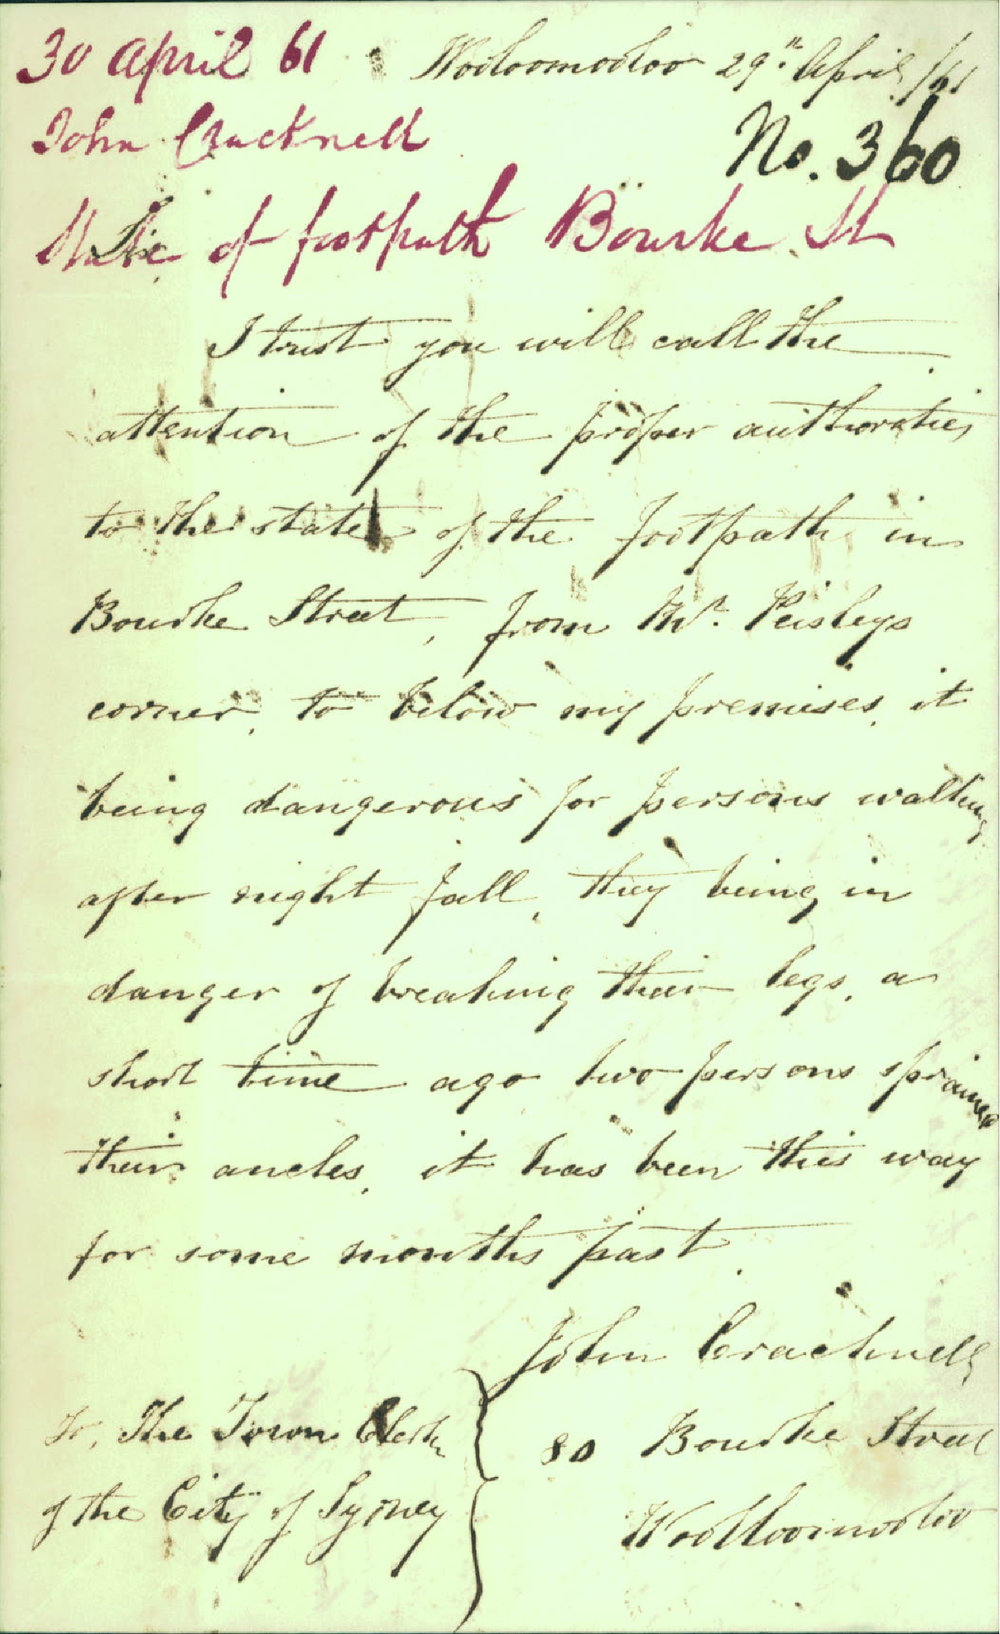 30 April 61
Wooloomooloo 29th April /61
John Cracknell
No. 360
State of footpath Bourke St
Sir
I trust you will call the
attention of the proper authoraties
to the state of the footpath in
Bourke Street, from Mr. Peisleys
corner, to below my premises, it
being dangerous for persons walking
after night fall, they being in
danger of breaking their legs, a
short time ago two persons sprained
their ancles, it has been this way
for some months past.
John Cracknell
80 Bourke Street
Woolloomooloo
To, The Town Clerk
of the City of Sydney